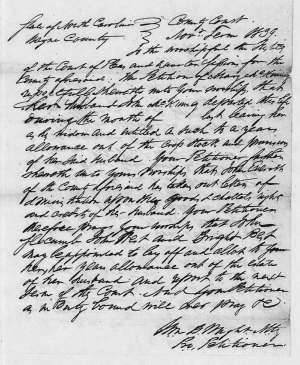 State of North Carolina } County Court
Wayne County } Nov. Term 1839
To the worshipful the Justices
of the Court of Pleas and quarter Sessions for the
County aforesaid. The Petition of Mary
respectfully sheweth unto your worships, that
her husband John departed this life
during the month of last leaving her
as his widow and entitled as such to a years
allowance out of the crop stock and provisions
of her said husband. Your Petitioner further
sheweth unto your worships, that John
of the County aforesaid has taken out letters of
administration upon the goods, chattels, rights
and credits of her husband. Your Petitioner
therefore prays your worships that John
Slocumb John West and Wright
may be appointed to lay off and allot to your
her years allowance out of the Estate
of her husband and report to the next
Term of this Court. And your Petitioner
as in duty bound will ever pray &c.
Wm B Wright Atty
Pro. Petitioner